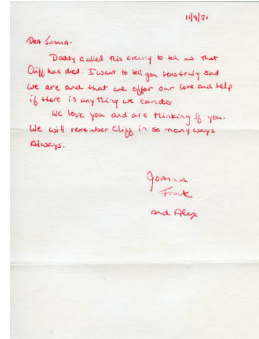 Dear
Daddy called this evening to tell us that
Cliff has died. I want to tell you how truly sad
we are and that we offer our love and help
if there is anything we can do
We love you and are thinking of you.
We will remember Cliff in so many ways
Always.
Joanna
Frank
and Alex